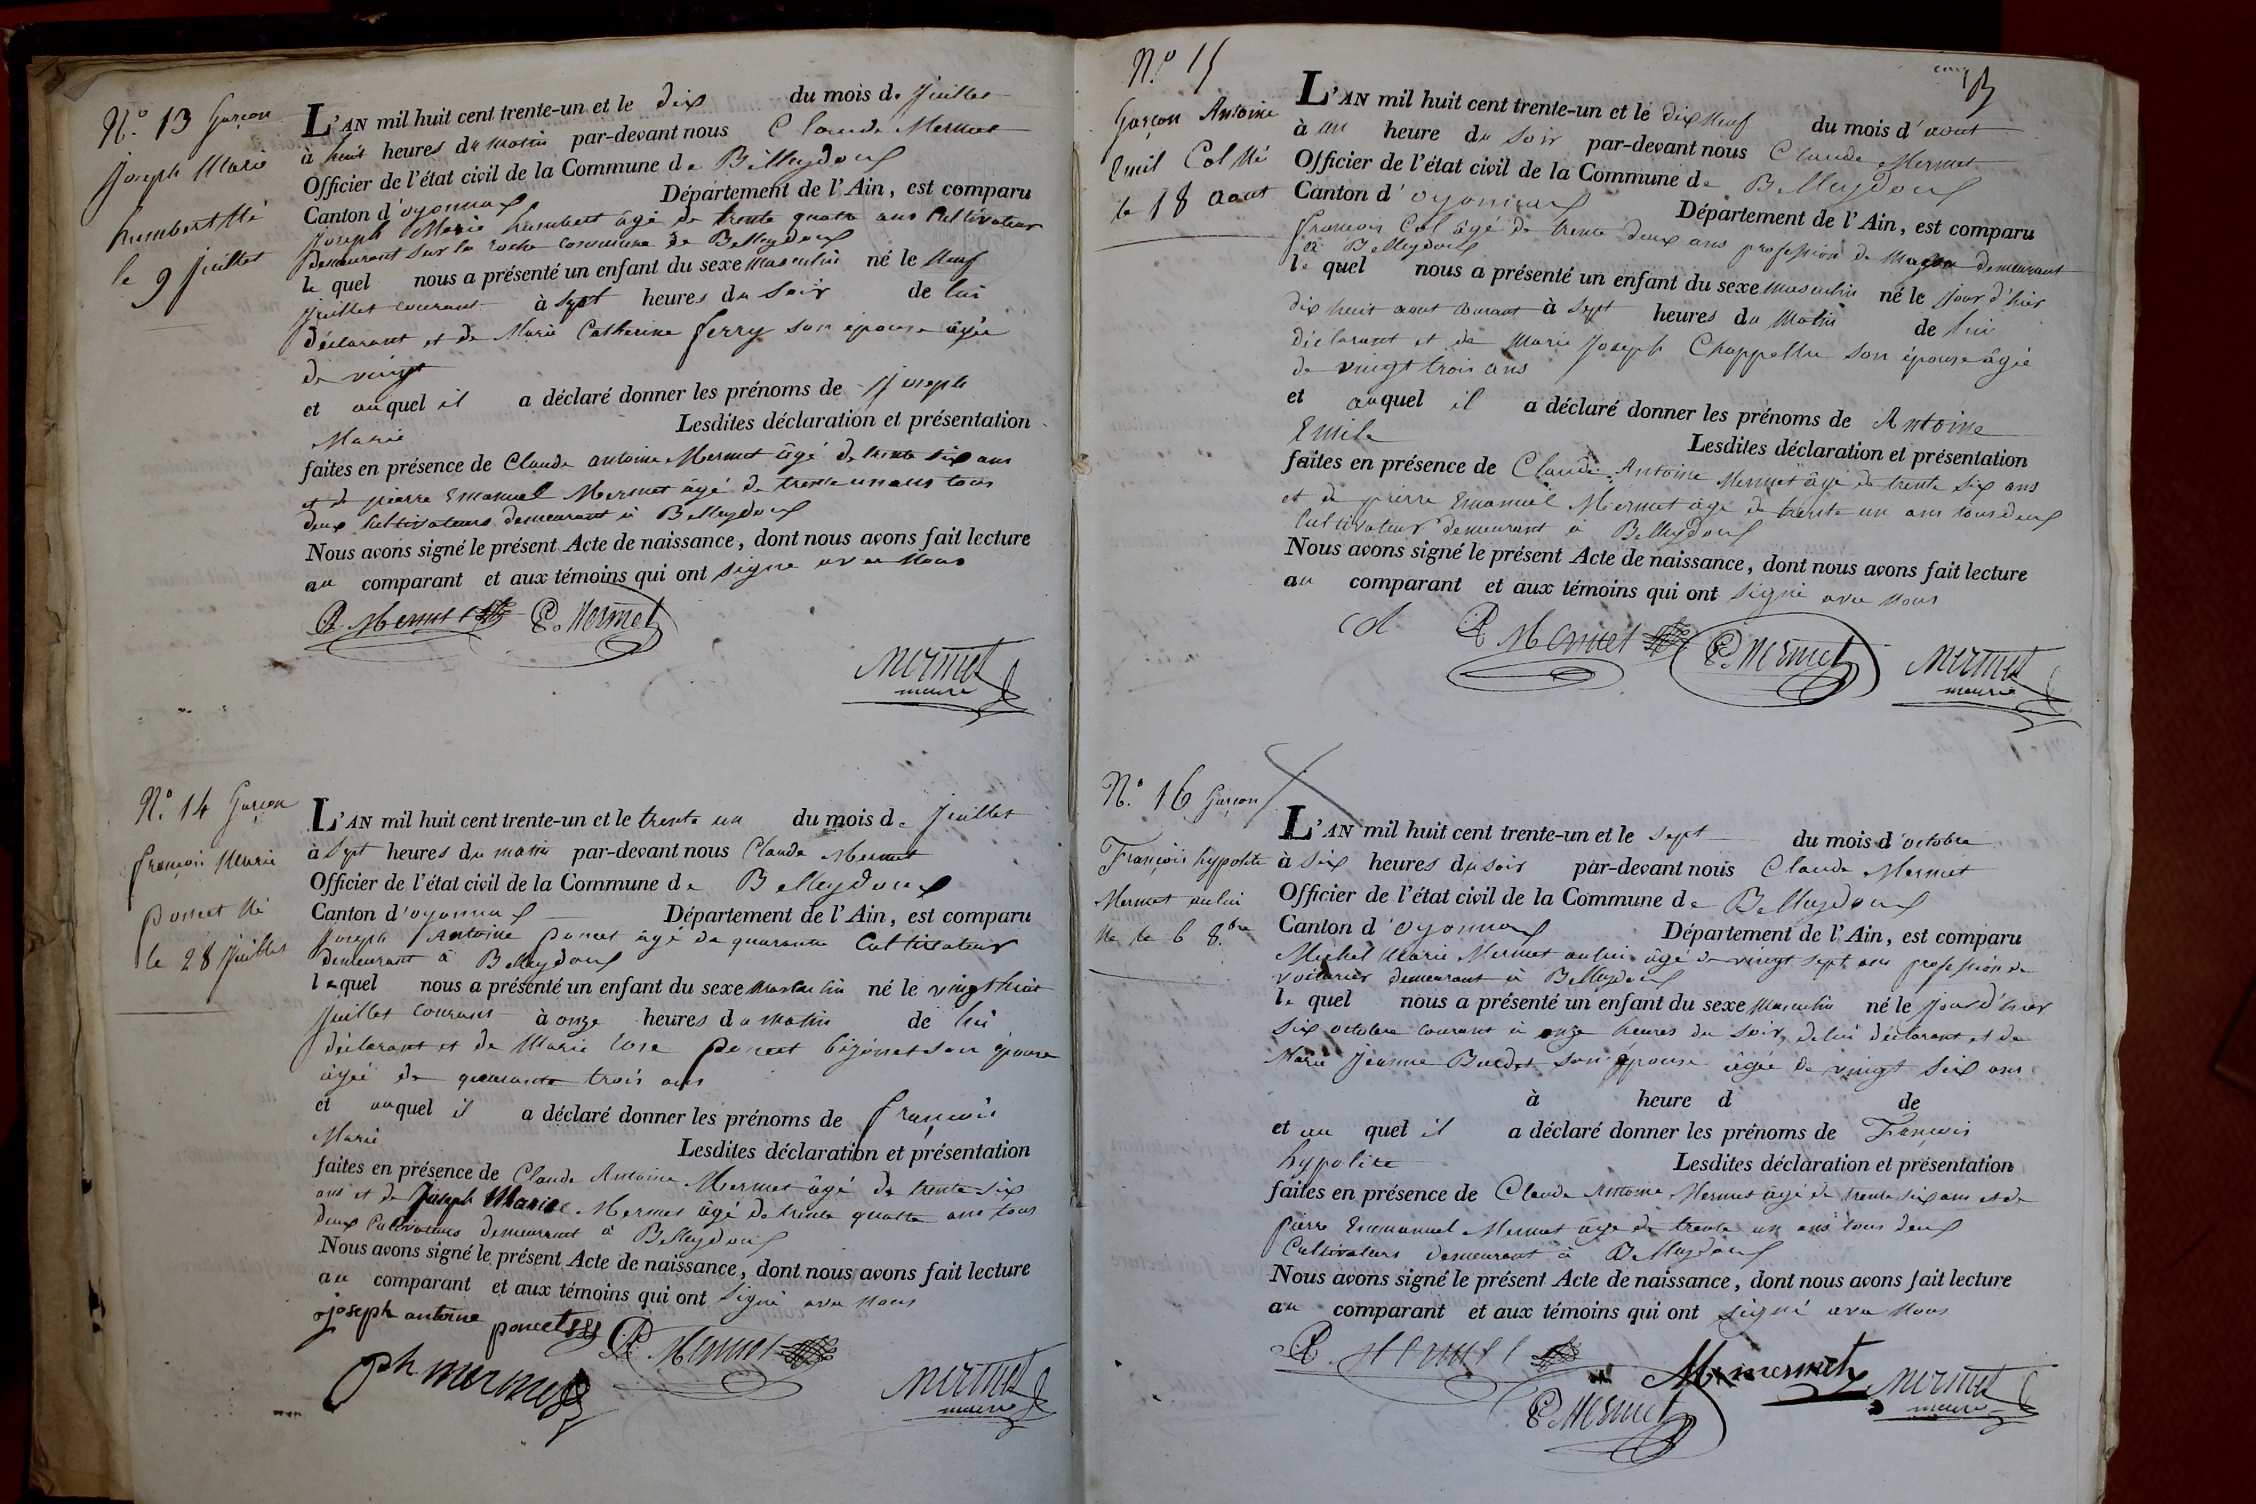 N.o 13 Garçon
Joseph Marie
humbert Né
le 9 Juillet
L'AN mil huit cent trente-un et le dix du mois de Juillet
à huit heures du matin par-devant nous Claude Mermet
Officier de l'état civil de la Commune de Belleydoux
Canton d'oyonnax Département de l'Ain, est comparu
Joseph Marie humbert âgé de trente quatre ans Cultivateur
demeurant sur la roche commune de Belleydoux
le quel nous a présenté un enfant du sexe masculin né le Neuf
Juillet courant à sept heures du soir de lui
déclarant et de Marie Catherine ferry son épouse âgée
de vingt
et auquel il a déclaré donner les prénoms de Joseph
Marie Lesdites déclaration et présentation
faites en présence de Claude antoine Mermet âgé de trente six ans
et de pierre Emanuel Mermet âgé de trente un ans tous
deux Cultivateurs demeurant à Belleydoux
Nous avons signé le présent Acte de naissance, dont nous avons fait lecture
au comparant et aux témoins qui ont signé avec Nous
Mermet P. Mermet
Mermet
maire
N.o 14 Garçon
françois Marie
poncet Né
le 28 Juillet
L'AN mil huit cent trente-un et le trente un du mois de Juillet
à sept heures du matin par-devant nous Claude Mermet
Officier de l'état civil de la Commune de Belleydoux
Canton d'oyonnax Département de l'Ain, est comparu
Joseph Antoine poncet âgé de quarante Cultivateur
demeurant à Belleydoux
lequel nous a présenté un enfant du sexe masculin né le vingt huit
Juillet courant à onze heures du matin de lui
déclarant et de Marie poncet son épouse
âgée de quarante trois ans
et auquel il a déclaré donner les prénoms de françois
Marie Lesdites déclaration et présentation
faites en présence de Claude Antoine Mermet âgé de trente six
ans et de Joseph Marie Mermet âgé de trente quatre ans tous
deux Cultivateurs demeurant à Belleydoux
Nous avons signé le présent Acte de naissance, dont nous avons fait lecture
au comparant et aux témoins qui ont signé avec Nous
joseph antoine poncet Mermet
jph mermet
Mermet
maire
N.o 15
Garçon Antoine
Emil Col Né
le 18 aout
L'AN mil huit cent trente-un et le dix Neuf du mois d'aout
à un heure du soir par-devant nous Claude Mermet
Officier de l'état civil de la Commune de Belleydoux
Canton d'oyonnax Département de l'Ain, est comparu
françois Col âgé de trente deux ans profession de Maçon demeurant
à Belleydoux
le quel nous a présenté un enfant du sexe masculin né le jour d'hier
dix huit aout courant à sept heures du Matin de lui
déclarant et de Marie Joseph Chappellu son épouse âgée
de vingt trois ans
et auquel il a déclaré donner les prénoms de Antoine
Emile Lesdites déclaration et présentation
faites en présence de Claude Antoine Mermet âgé de trente six ans
et de pierre Emanuel Mermet âgé de trente un ans tous deux
Cultivateur demeurant à Belleydoux
Nous avons signé le présent Acte de naissance, dont nous avons fait lecture
au comparant et aux témoins qui ont signé avec Nous
col Mermet P. Mermet Mermet
maire
N.o 16 Garçon
François hypolite
Mermet aulin
Né le 6 8.bre
L'AN mil huit cent trente-un et le sept du mois d'octobre
à six heures du soir par-devant nous Claude Mermet
Officier de l'état civil de la Commune de Belleydoux
Canton d'oyonnax Département de l'Ain, est comparu
Michel Marie Mermet aulin âgé de vingt sept ans profession de
voiturier demeurant à Belleydoux
le quel nous a présenté un enfant du sexe masculin né le jour d'hier
six octobre courant à onze heures du soir, de lui déclarant et de
Marie Jeanne Buldet son épouse âgée de vingt six ans
à heure d de
et au quel il a déclaré donner les prénoms de François
hypolite Lesdites déclaration et présentation
faites en présence de Claude Antoine Mermet âgé de trente six ans et de
pierre Emmanuel Mermet âgé de trente un ans tous deux
Cultivateurs demeurant à Belleydoux
Nous avons signé le présent Acte de naissance, dont nous avons fait lecture
au comparant et aux témoins qui ont signé avec Nous
Mermet M. mermet Mermet
maire
P. Mermet